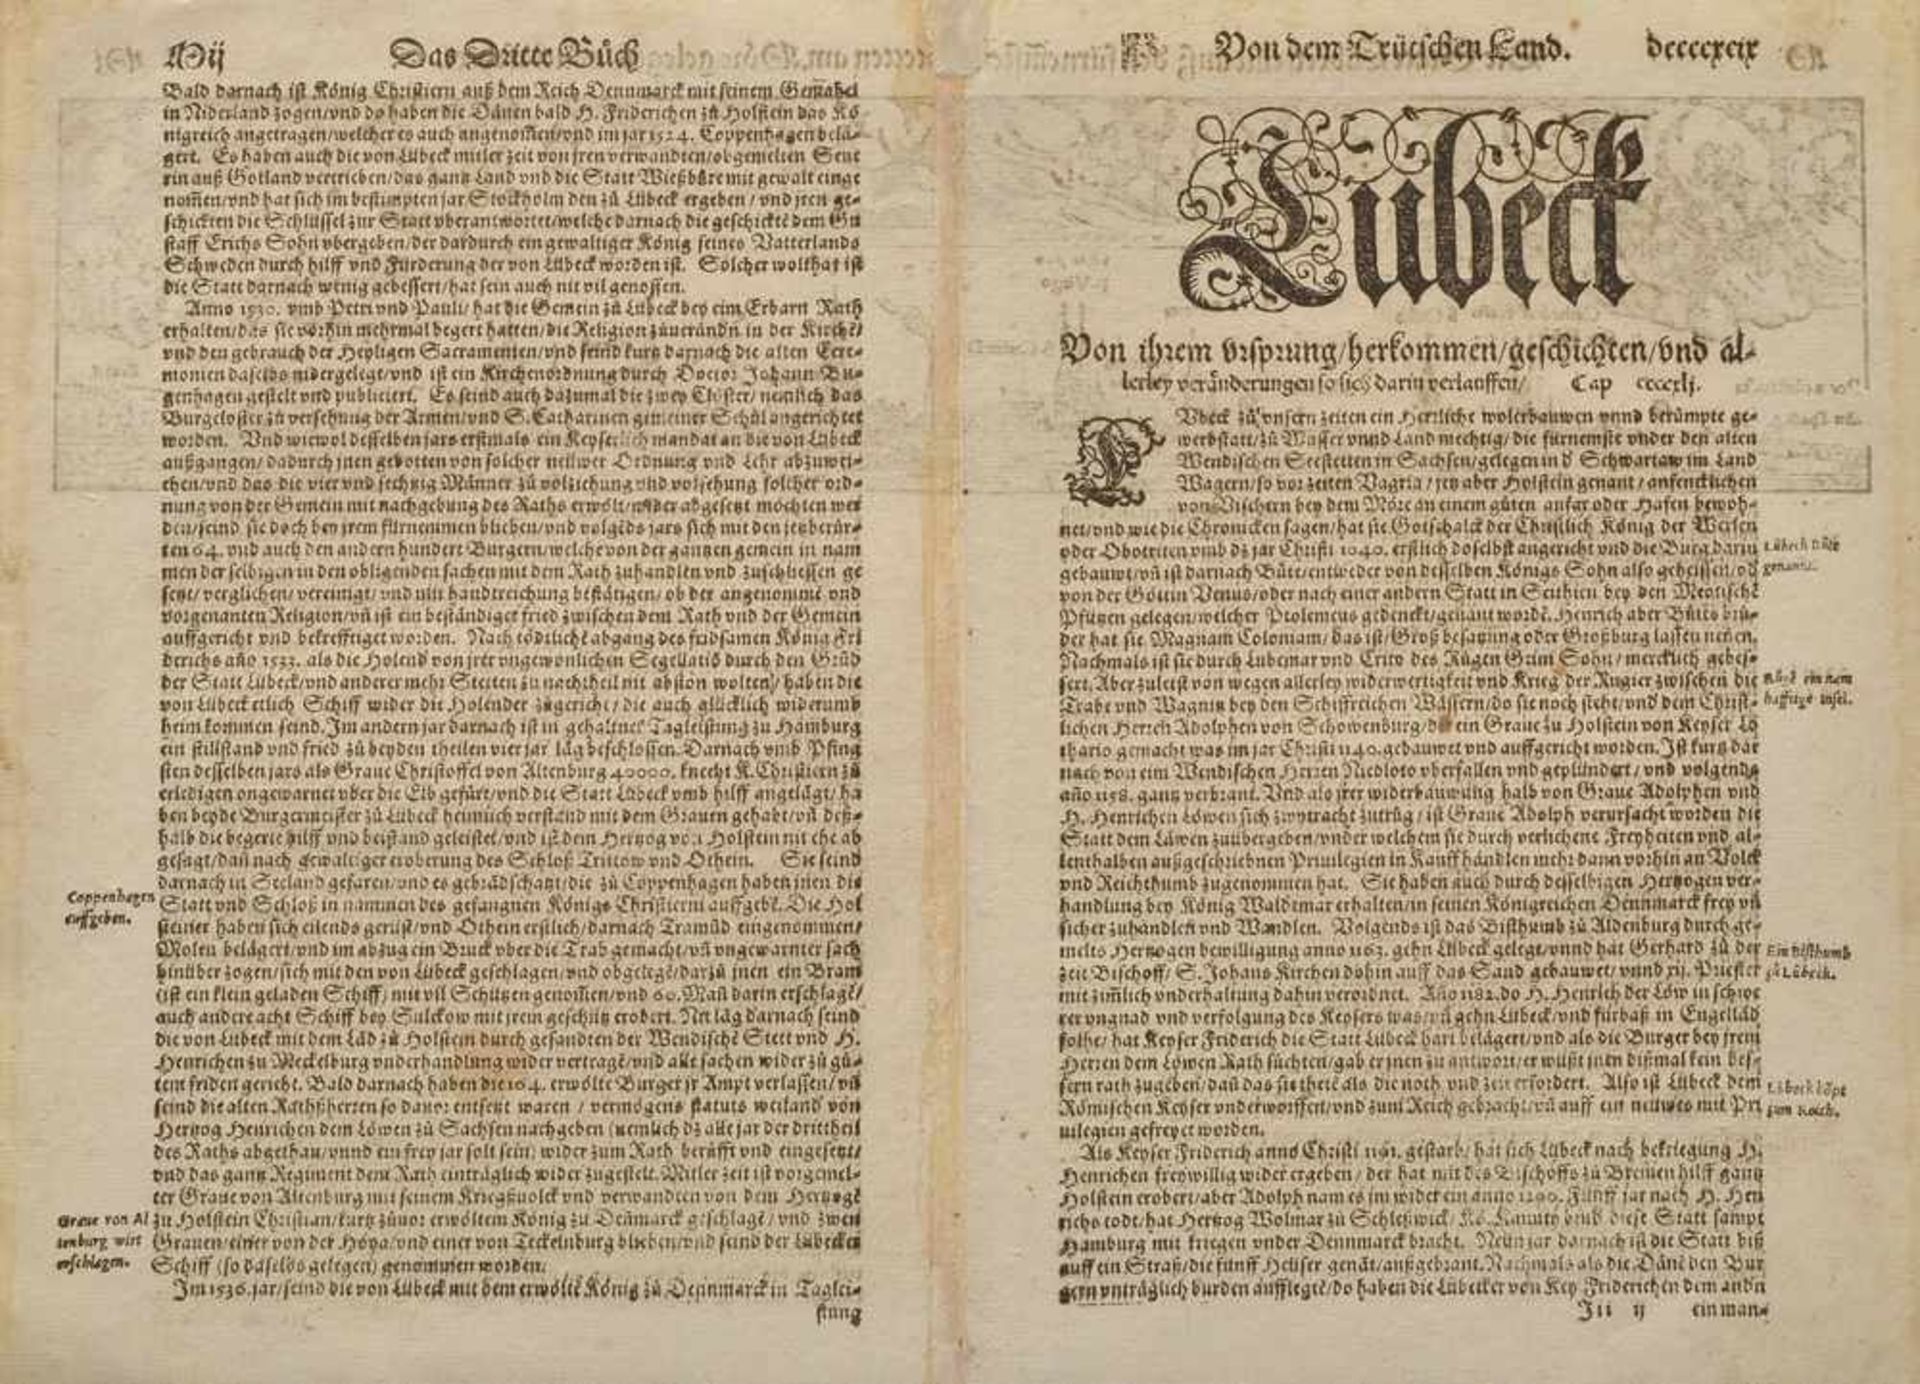 Mij Das Dritte Bůch
Bald darnach ist König Christiern auß dem Reich Dennmarck mit seinem Gemahel
in Niderland zogen/vnd do haben die Dänen bald H. Friderichen zů Holstein das Kö
nigreich angetragen/welcher es auch angenommen/vnd im jar 1524. Coppenhagen belä-
gert. Es haben auch die von Lübeck mitler zeit von jren verwandten/obgemelten Seue
rin auß Gotland vertrieben/das gantz Land vnd die Statt Wießbüre mit gewalt einge
nom̃en/vnd hat sich im bestimpten jar Stockholm den zů Lübeck ergeben/vnd jren ge-
schickten die Schlüssel zur Statt vberantwortet/welche darnach die geschickte dem Gu
staff Erichs Sohn vbergeben/der dardurch ein gewaltiger König seines Vatterlands
Schweden durch hilff vnd Fürderung der von Lübeck worden ist. Solcher wolthat ist
die Statt darnach wenig gebessert/hat sein auch nit vil genossen.
Anno 1530. vmb Petri vnd Pauli/hat die Gemein zů Lübeck bey eim Erbarn Rath
erhalten/das sie vorhin mehrmal begert hatten/die Religion zů verändn in der Kirche/
vnd den gebrauch der Heyligen Sacramenten/vnd seind kurtz darnach die alten Cere-
monien daselbs nidergelegt/vnd ist ein Kirchenordnung durch Doctor Johann Bu-
genhagen gestelt vnd publiciert. Es seind auch dazumal die zwey Clöster/nemlich das
Burgcloster zů versehung der Armen/vnd S. Catharinen gemeiner Schůl angerichtet
worden. Vnd wiewol desselben jars erstmals ein Keyserlich mandat an die von Lübeck
außgangen/dadurch jnen gebotten von solcher neüwer Ordnung vnd Lehr abzuwei-
chen/vnd das die vier vnd sechtzig Männer zů volziehung vnd volsehung solcher ord-
nung von der Gemein mit nachgebung des Raths erwölt/wider abgesetzt möchten wer
den/seind sie doch bey jrem fürnemmen blieben/vnd volgēds jars sich mit den jetzberür-
ten 64. vnd auch den andern hundert Burgern/welche von der gantzen gemein in nam
men der selbigen in den obligenden sachen mit dem Rath zuhandlen vnd zuschliessen ge
setzt/verglichen/vereinigt/vnd mit handtreichung bestätigen/ob der angenommē vnd
vorgenanten Religion/vñ ist ein beständiger fried zwischen dem Rath vnd der Gemein
auffgericht vnd bekrefftiget worden. Nach tödtlichē abgang des fridsamen König Fri
derichs año 1533. als die Holend von jrer vngewonlichen Segellatiō durch den Grūd
der Statt Lübeck/vnd anderer mehr Stetten zů nachtheil nit abston wolten/haben die
von Lübeck etlich Schiff wider die Holender zůgericht/die auch glücklich widerumb
heim kommen seind. Im andern jar darnach ist in gehaltner Tagleistung zu Hamburg
ein stillstand vnd fried zů beyden theilen vier jar lāg beschlossen. Darnach vmb Pfing
sten desselben jars als Graue Christoffel von Altenburg 40000. knecht K. Christiern zů
erledigen ongewarnet vber die Elb gefürt/vnd die Statt Lübeck vmb hilff angelāgt/ha
ben beyde Burgermeister zů Lübeck heimlich verstand mit dem Grauen gehabt/vñ deß-
halb die begerte hilff vnd beistand geleistet/vnd ist dem Hertzog von Holstein nit ehe ab
gesagt/dañ nach gewaltiger eroberung des Schloß Trittow vnd Othein. Sie seind
darnach in Seeland gefaren/vnd es gebrādschatzt/die zů Coppenhagen haben jnen die
Coppenhagen auffgeben.
Statt vnd Schloß in nammen des gefangnen Königs Christierni auffgebē. Die Hol
steiner haben sich eilends gerüst/vnd Othein erstlich/darnach Tramūd eingenommen/
Molen belägert/vnd im abzug ein Bruck vber die Trab gemacht/vñ vngewarnter sach
hinüber zogen/sich mit den von Lübeck geschlagen/vnd obgelegē/darzů jnen ein Bram
(ist ein klein geladen Schiff) mit vil Schützen genom̃en/vnd 60. Mañ darin erschlagē/
auch andere acht Schiff bey Sulckow mit jrem geschütz erobert. Nit lāg darnach seind
die von Lübeck mit dem Lād zů Holstein durch gesandten der Wendischē Stett vnd H.
Henrichen zu Meckelburg vnderhandlung wider vertragē/vnd alle sachen wider zů gů-
tem friden gericht. Bald darnach haben die 164. erwölte Burger jr Ampt verlassen/vñ
seind die alten Rathßherren so dauor entsetzt waren/vermögens statuts weiland von
Hertzog Henrichen dem Löwen zů Sachsen nachgeben (nemlich dz alle jar der drittheil
des Raths abgethan/vnnd ein frey jar solt sein) wider zum Rath berüfft vnd eingesetzt/
vnd das gantz Regiment dem Rath einträglich wider zugestelt. Mitler zeit ist vorgemel-
ter Graue von Altenburg mit seinem Kriegßuolck vnd verwandten von dem Hertzogē
Graue von Al
tenburg wirt
erschlagen.
zu Holstein Christian/kurtz zůuor erwöltem König zu Deñmarck geschlagē/vnd zwen
Grauen/einer von der Hoya/vnd einer von Teckelnburg blieben/vnd seind der Lübecker
Schiff (so daselbs gelegen) genommen worden.
Im 1536. jar/seind die von Lübeck mit dem erwöltē König zů Dennmarck in Taglei-
stung
Von dem Teütschen Land. dccccxcix
Lübeck
Von ihrem vrsprung/herkommen/geschichten/vnd al-
lerley veränderungen so sich darin verlauffen/ Cap ccccxlj.
LVbeck zů vnsern zeiten ein Herrliche wolerbauwen vnnd berümpte ge-
werbstatt/zů Wasser vnnd Land mechtig/die fürnemste vnder den alten
Wendischen Seestetten in Sachsen/gelegen in d̕ Schwartaw im Land
Wagern/so vor zeiten Vagria/jetz aber Holstein genant/anfencklichen
von Vischern bey dem Möre an einem gůten anfar oder Hafen bewoh-
net/vnd wie die Chronicken sagen/hat sie Gotschalck der Christlich König der Werlen
oder Obotriten vmb dz jar Christi 1040. erstlich doselbst angericht vnd die Burg darin
Lübeck Bůtz
genant.
gebauwt/vñ ist darnach Bůtz/entweder von desselben Königs Sohn also geheissen/od̕
von der Göttin Venus/oder nach einer andern Statt in Scithien bey den Meotischē
Pfützen gelegen/welcher Ptolemeus gedenckt/genant wordē. Henrich aber Bůtzs brů-
der hat sie Magnam Coloniam/das ist/Groß besatzung oder Großburg lassen neñen.
Nachmals ist sie durch Lubemar vnd Crito des Rügen Grim Sohn/mercklich gebes-
sert. Aber zuletst von wegen allerley widerwertigkeit vnd Krieg der Rugier zwischen die
Rügē ein nam
hafftige Insel.
Trabe vnd Wagnitz bey den Schiffreichen Wässern/do sie noch steht/vnd dem Christ-
lichen Herrē Adolphen von Schowenburg/der ein Graue zu Holstein von Keyser Lo
thario gemacht was im jar Christi 1140. gebauwet vnd auffgericht worden. Ist kurtz dar
nach von eim Wendischen Herren Nicloto vberfallen vnd geplündert/vnd volgends
año 1158. gantz verbrant. Vnd als jrer widerbauwung halb von Graue Adolphen vnd
H. Henrichen Löwen sich zwytracht zůtrůg/ist Graue Adolph verursacht worden die
Statt dem Löwen zuübergeben/vnder welchem sie durch verlichene Freyheiten vnd al-
lenthalben außgeschriebnen Priuilegien in Kauffhändlen mehr dann vorhin an Volck
vnd Reichthumb zugenommen hat. Sie haben auch durch desselbigen Hertzogen ver-
handlung bey König Waldemar erhalten/in seinen Königreichen Dennmarck frey vñ
sicher zuhandlen vnd Wandlen. Volgends ist das Bisthumb zů Aldenburg durch ge-
melts Hertzogen bewilligung anno 1163. gehn Lübeck gelegt/vnnd hat Gerhard zů der
Ein Bisthumb
zů Lübeck.
zeit Bischoff/S. Johans Kirchen dohin auff das Sand gebauwet/vnnd xij. Priester
mit zim̃lich vnderhaltung dahin verordnet. Año 1182. do H. Henrich der Löw in schwe
rer vngnad vnd verfolgung des Keysers was/vñ gehn Lübeck/vnd fürbaß in Engellād
folhe/hat Keyser Friderich die Statt Lübeck hart belägert/vnd als die Burger bey jrem
Herren dem Löwen Rath sůchten/gab er jnen zu antwort/er wüßt jnen dißmal kein bes-
sern rath zugeben/dañ das sie thetē als die noth vnd zeit erfordert. Also ist Lübeck dem
Lübeck kōpt
zum Reich.
Römischen Keyser vnderworffen/vnd zum Reich gebracht/vñ auff ein neüwes mit Pri
uilegien gefreyet worden.
Als Keyser Friderich anno Christi 1191. gestarb/hat sich Lübeck nach bekriegung H.
Henrichen freywillig wider ergeben/der hat mit des Bischoffs zů Bremen hilff gantz
Holstein erobert/aber Adolph nam es jm wider ein anno 1200. Fünff jar nach H. Hen
richs todt/hat Hertzog Wolmar zů Schleßwick/Kö. Kanuts brůd diese Statt sampt
Hamburg mit kriegen vnder Dennmarck bracht. Neün jar darnach ist die Statt biß
auff ein Straß/die fünff Heüser genāt/außgebrant. Nachmals als die Dänē den Bur
gern vnträglich burden aufflegtē/do haben die Lübecker von Key Friderichen dem andn̄
Iii ij ein man-